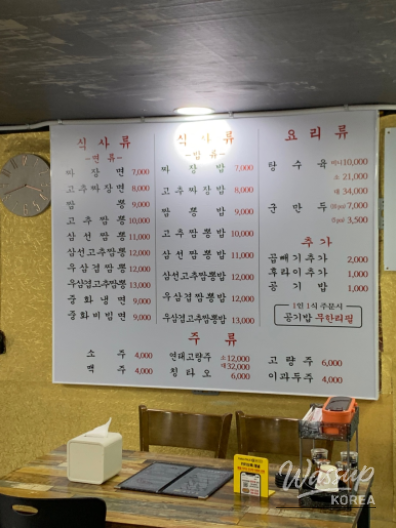 식사류
-면류-
짜장면 7,000
고추짜장면 8,000
짬뽕 9,000
고추짬뽕 10,000
삼선짬뽕 11,000
삼선고추짬뽕 12,000
우삼겹짬뽕 12,000
우삼겹고추짬뽕 13,000
중화냉면 9,000
중화비빔면 9,000
식사류
-밥류-
짜장밥 7,000
고추짜장밥 8,000
짬뽕밥 9,000
고추짬뽕밥 10,000
삼선짬뽕밥 11,000
삼선고추짬뽕밥 12,000
우삼겹짬뽕밥 12,000
우삼겹고추짬뽕밥 13,000
요리류
탕수육 미니 10,000
소 21,000
대 34,000
군만두 7,000
3,500
추가
곱빼기추가 2,000
후라이추가 1,000
공기밥 1,000
1인 1식 주문시
공기밥 무한리필
주류
소주 4,000
맥주 4,000
연태고량주 소 12,000
대 32,000
칭타오 6,000
고량주 6,000
이과두주 4,000
Wassup
KOREA